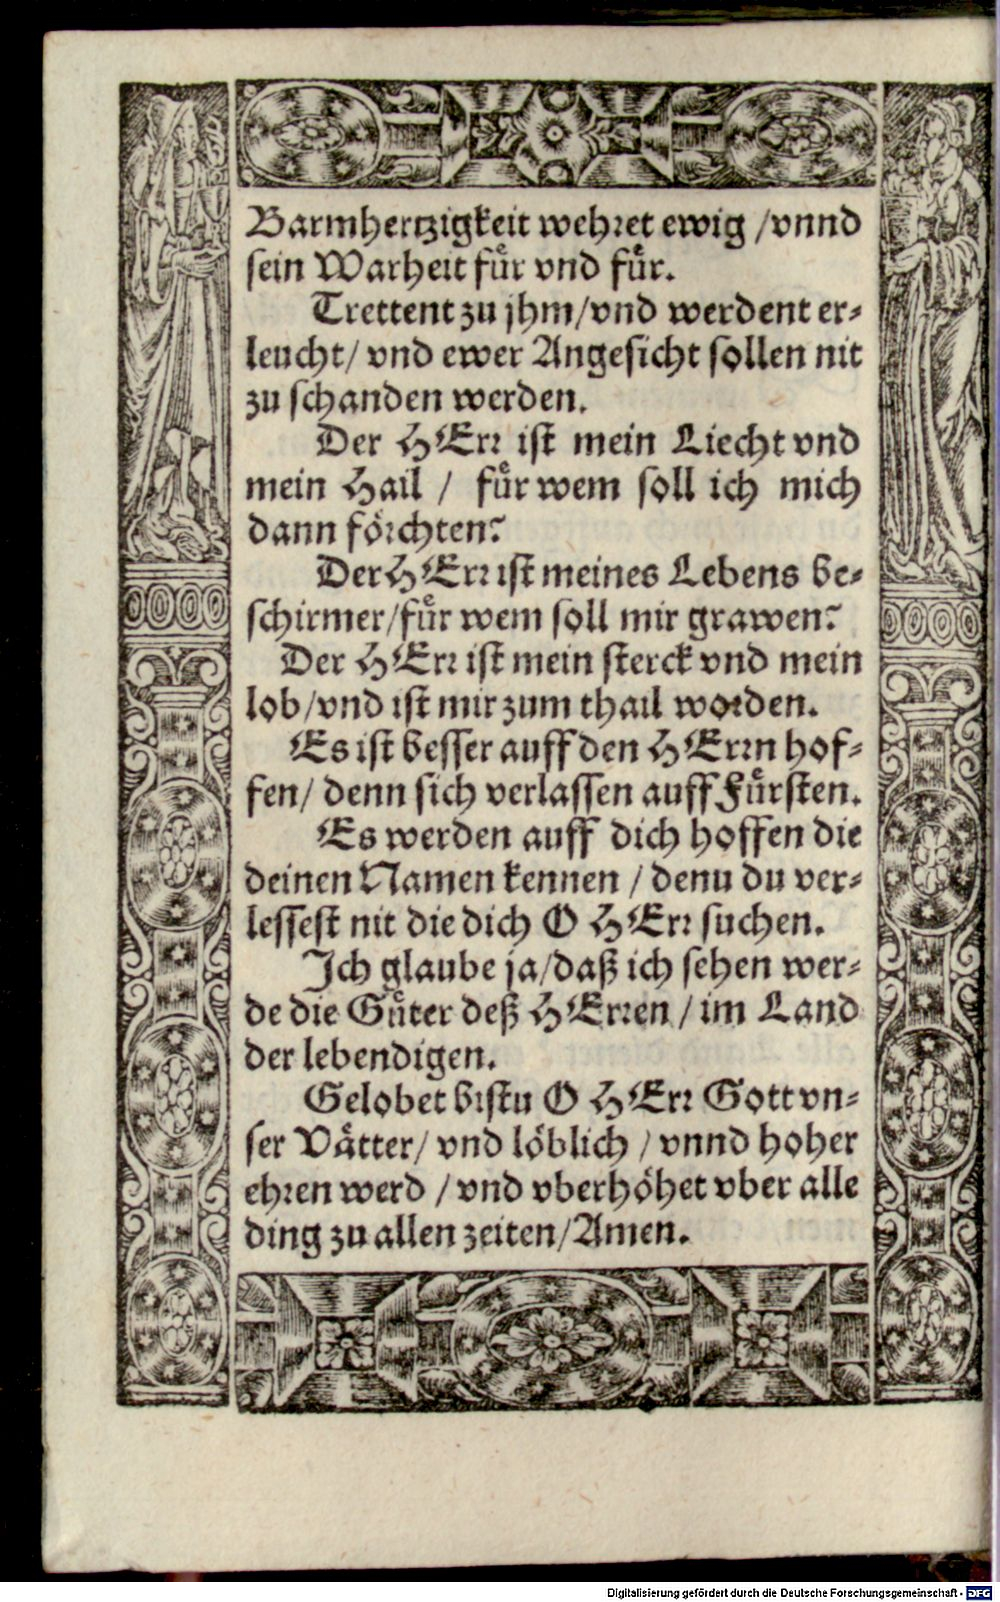 Barmhertzigkeit wehret ewig /vnnd
sein Warheit fuͤr vnd fuͤr.
Trettent zu jhm/vnd werdent er⸗
leucht/ vnd ewer Angesicht sollen nit
zu schanden werden.
Der HErr ist mein Liecht vnd
mein Hail / fuͤr wem soll ich mich
dann foͤrchten?
Der HErr ist meines Lebens be⸗
schirmer/fuͤr wem soll mir grawen?
Der HErr ist mein sterck vnd mein
lob/vnd ist mir zum thail worden.
Es ist besser auff den HErrn hof⸗
fen/ denn sich verlassen auff Fuͤrsten.
Es werden auff dich hoffen die
deinen Namen kennen / denu du ver⸗
lessest nit die dich O HErr suchen.
Ich glaube ja/daß ich sehen wer⸗
de die Guͤter deß HErren / im Land
der lebendigen.
Gelobet bistu O HErr Gott vn⸗
ser Vaͤtter/ vnd loͤblich / vnnd hoher
ehren werd / vnd vberhoͤhet vber alle
ding zu allen zeiten/Amen.
Digitalisierung gefördert durch die Deutsche Forschungsgemeinschaft - DFG